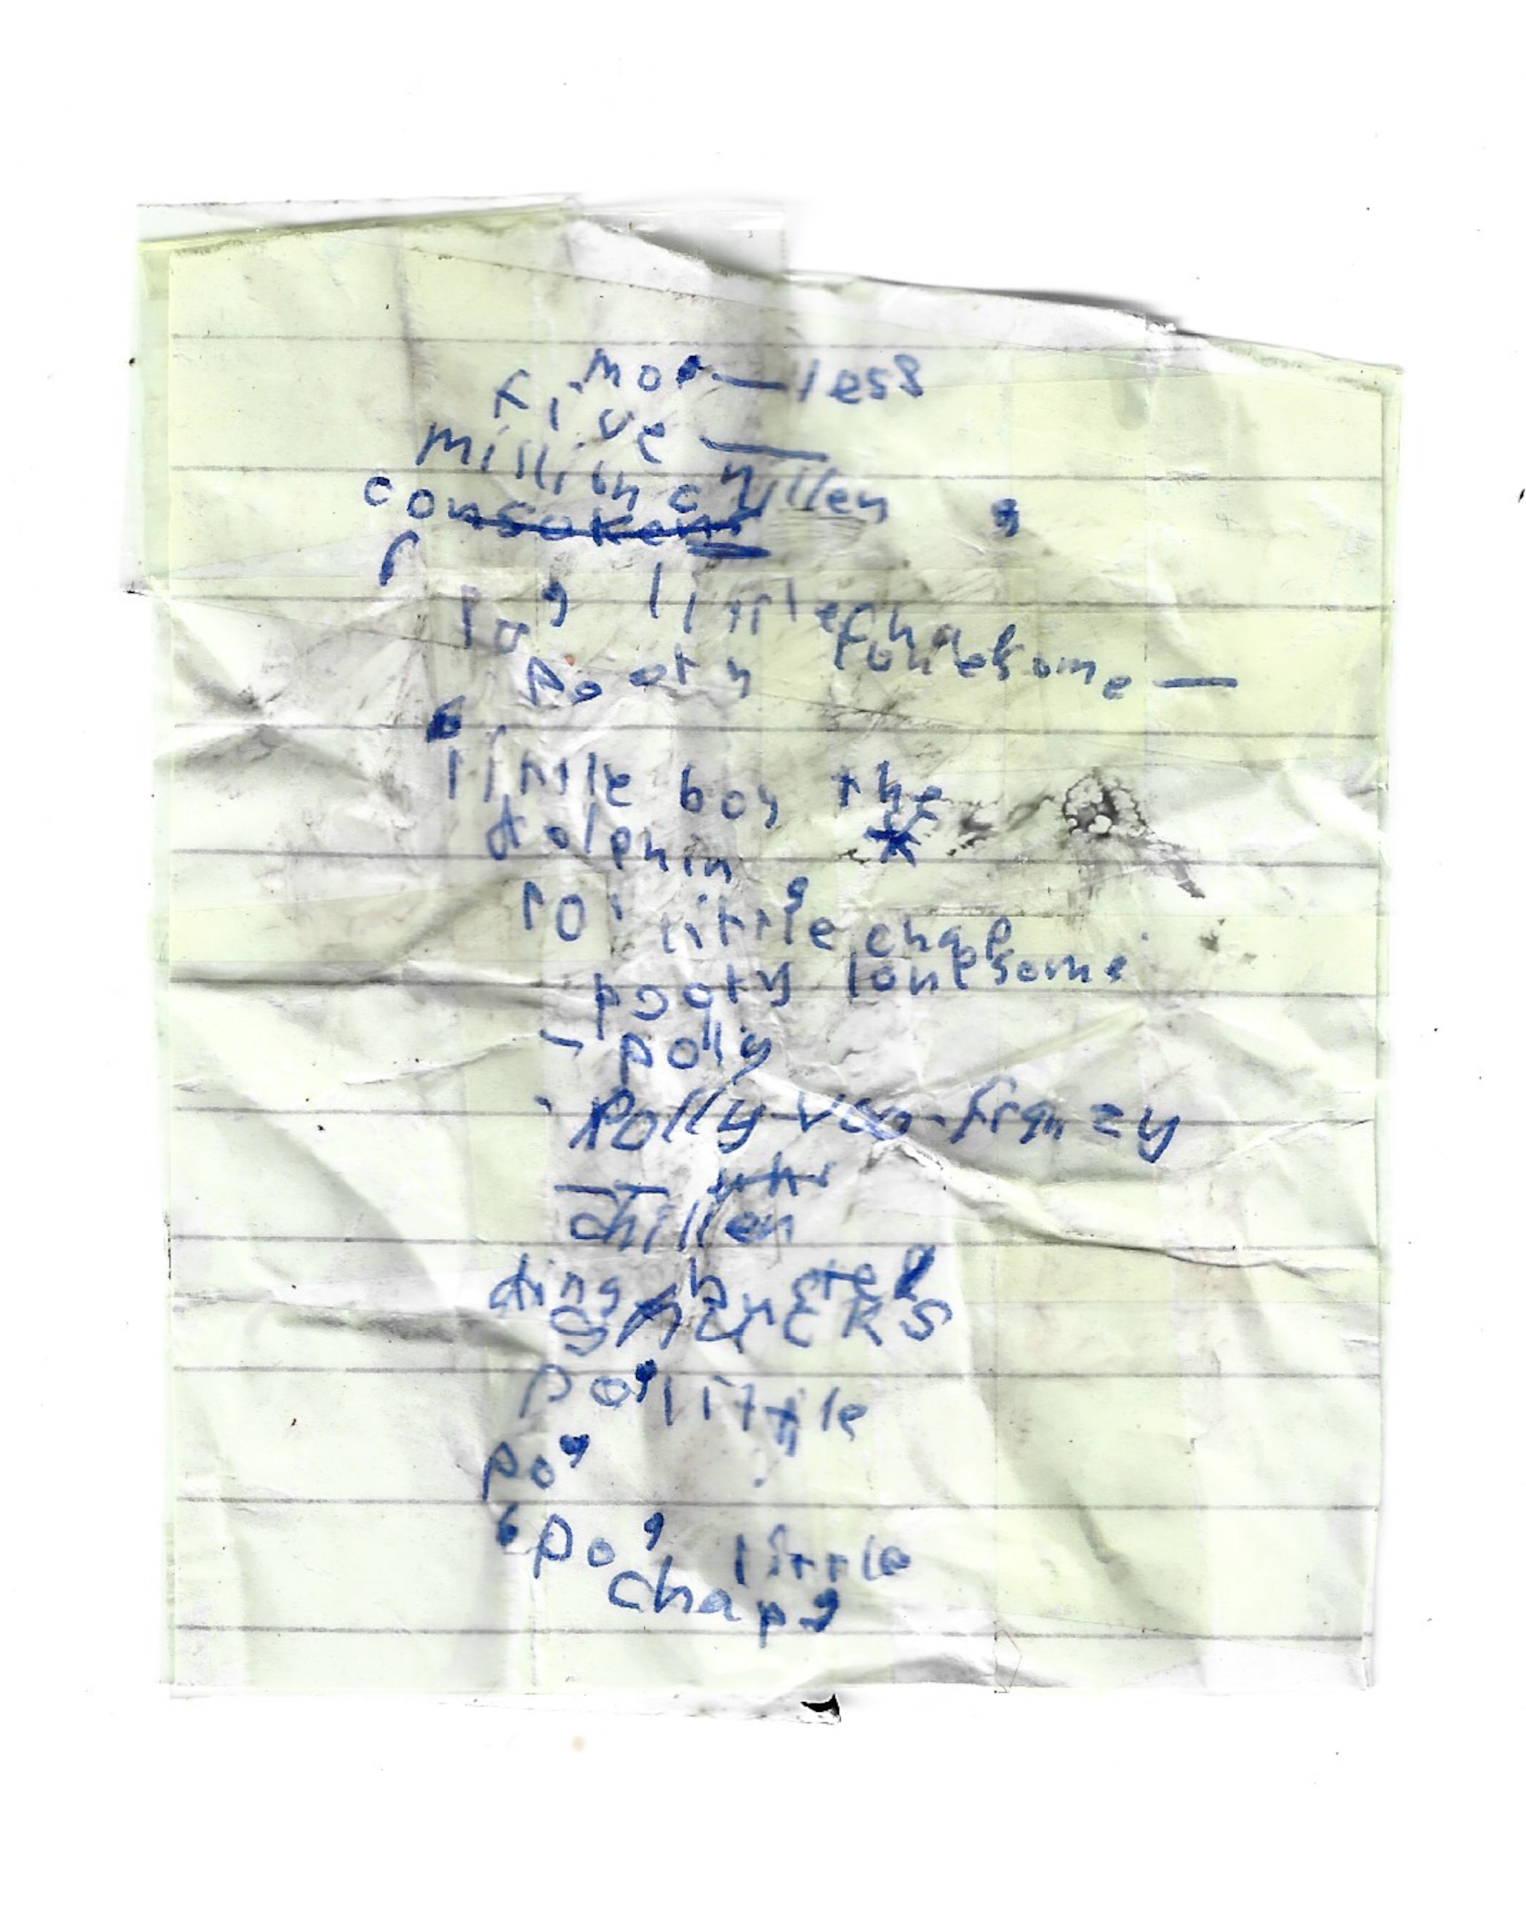 mo — less
five —
million chillen
consoken
po' little chap
pooty lonesome —
little boy the
dolphin
po' little chap
pooty lonesome
- polly
Polly-voo-franzy
chillen
ding b
po' little
po'
'po' little
chap'